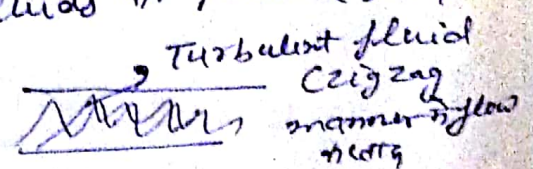 Turbulent fluid
(zigzag
manner flow